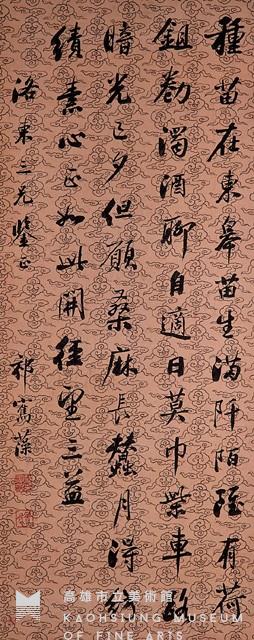 種苗在東皋苗生滿阡陌雖有荷
鉏勌濁酒聊自適日莫巾柴車路
暗光已夕但願桑麻長蠶月得紡
績素心正如此開徑望三益
洛東三兄鑒正
祁寯藻
高雄市立美術館
KAOHSIUNG MUSEUM
OF FINE ARTS